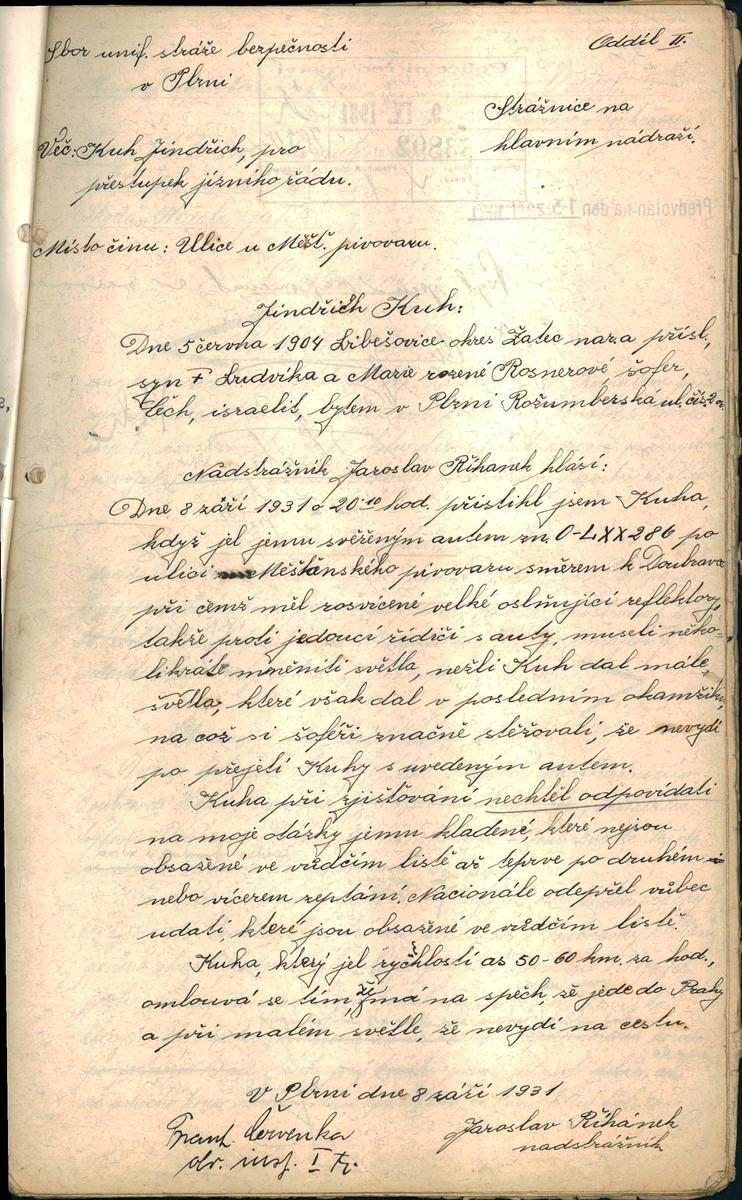 Sbor unif. stráže bezpečnosti
v Plzni
Oddíl II.
Strážnice na
hlavním nádraží.
Věc: Kuh Jindřich, pro
přestupek jízního řádu.
Předvolán na den
Místo činu: Ulice u Měšť. pivovaru.
Jindřich Kuh:
Dne 5 června 1904 Libešovice okres Žatec nar. a přísl.,
syn † Ludvíka a Marie rozené Rosnerové šofer,
Čech, israelit, bytem v Plzni Rožumberská ul. čís. 2
Nadstrážník Jaroslav Říhanek hlásí:
Dne 8 září 1931 o 20.10 hod. přistihl jsem Kuha,
když jel jemu svěřeným autem zn. O-LXX286 po
ulici Měšťanského pivovaru směrem k Doubravce
při čemž měl rosvícené velké oslňující reflektory,
takže proti jedoucí řidiči s auty, museli něko-
likráte měniti světla, nežli Kuh dal malé
světla, které však dal v posledním okamžiku,
na což si šoféři značně stěžovali, že nevydí
po přejetí Kuhy s uvedeným autem.
Kuha při zjišťování nechtěl odpovídati
na moje otázky jemu kladené, které nejsou
obsažené ve vůdčím listě až teprve po druhém
nebo vícerem zeptání. Nacionále odepřel vůbec
udati, které jsou obsažené ve vůdčím listě.
Kuha, který jel rychlostí as 50-60 km. za hod.,
omlouvá se tím, že má na spěch, že jede do Prahy
a při malém světle, že nevydí na cestu.
V Plzni dne 8 září 1931
Frant. Červenka
dr. insp. I tř.
Jaroslav Říhánek
nadstrážník